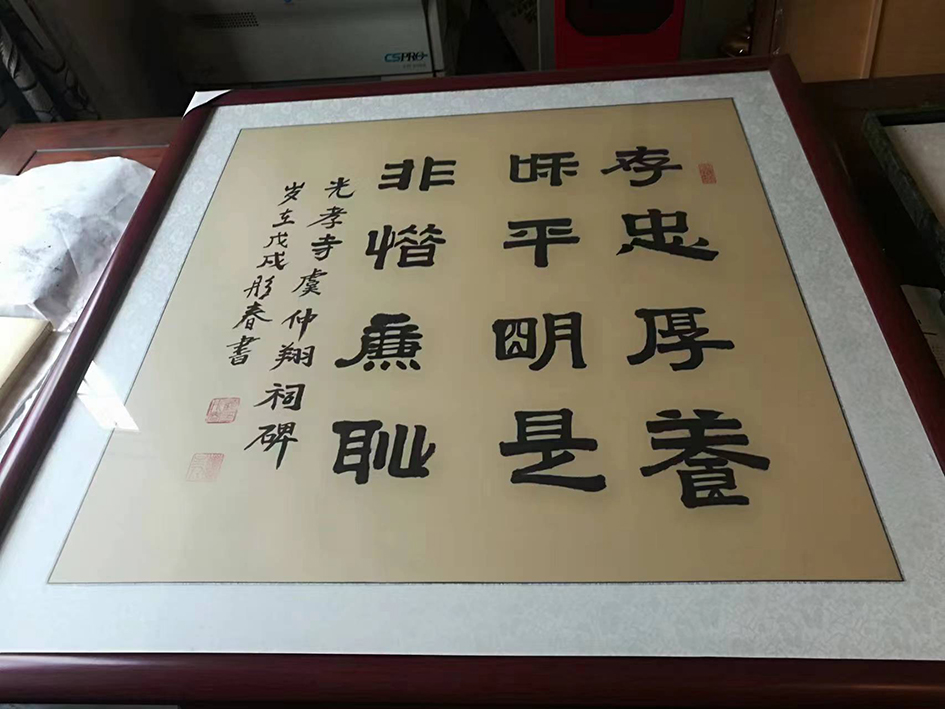 CSPRO
存忠厚養
咊平朙是
非惜廉耻
光孝寺虞仲翔祠碑
岁在戊戌彤春書